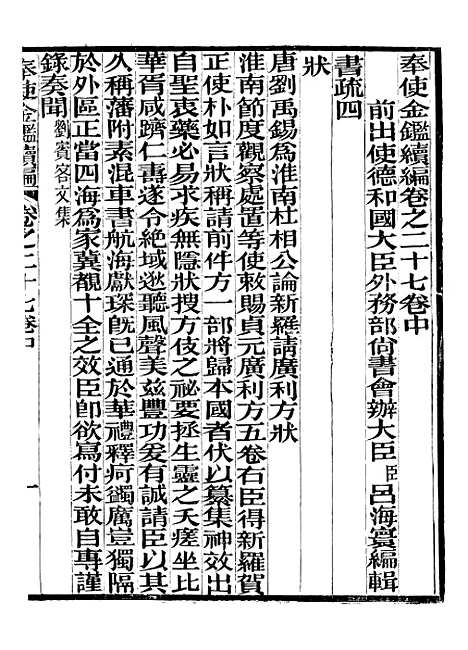 奉使金鑑續編卷之二十七卷中
前出使德和國大臣外務部尙書會辦大臣臣呂海寰編輯
書疏四
狀
唐劉禹錫爲淮南杜相公論新羅請廣利方狀
淮南節度觀察處置等使敕賜貞元廣利方五卷右臣得新羅賀
正使朴如言狀稱請前件方一部將歸本國者伏以纂集神效出
自聖衷藥必易求疾無隱狀搜方伎之祕要拯生靈之夭瘥坐比
華胥咸躋仁壽遂令絶域逖聽風聲美兹豐功爰有誠請臣以其
久稱藩附素混車書航海獻琛旣已通於華禮釋疴蠲厲豈獨隔
於外區正當四海爲家冀覩十全之效臣卽欲寫付未敢自專謹
錄奏聞劉賓客文集
奉使金鑑續編 卷之二十七卷中 一